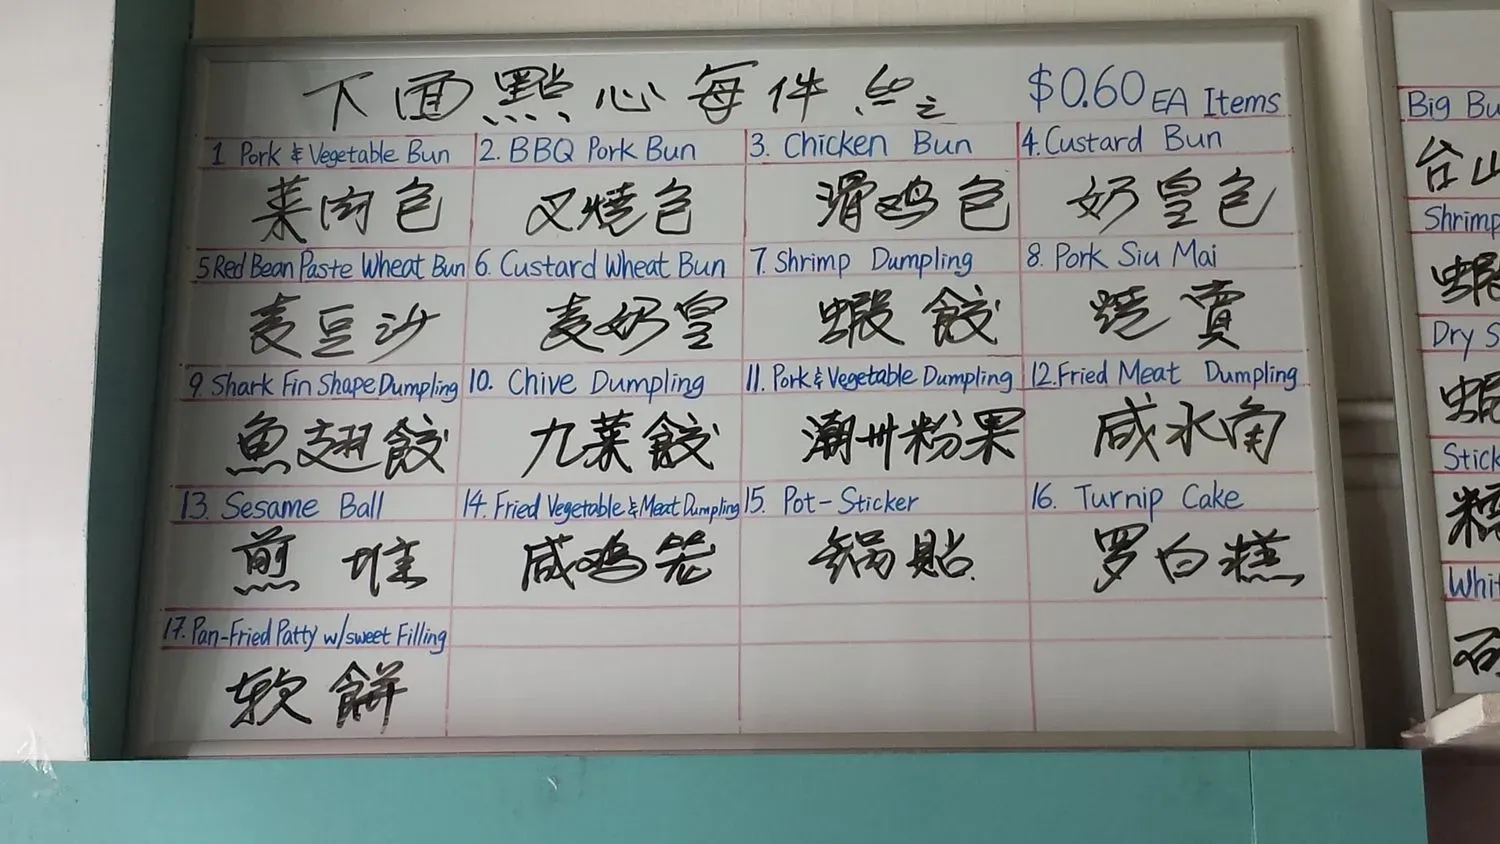 下面點心每件
$0.60 EA Items
1 Pork & Vegetable Bun
2. BBQ Pork Bun
3. Chicken Bun
4. Custard Bun
菜肉包
叉燒包
滑鸡包
奶皇包
5 Red Bean Paste Wheat Bun
6. Custard Wheat Bun
7. Shrimp Dumpling
8. Pork Siu Mai
麦豆沙
麦奶皇
蝦餃
燒賣
9. Shark Fin Shape Dumpling
10. Chive Dumpling
11. Pork & Vegetable Dumpling
12. Fried Meat Dumpling
魚翅餃
九菜餃
潮州粉果
咸水角
13. Sesame Ball
14. Fried Vegetable & Meat Dumpling
15. Pot-Sticker
16. Turnip Cake
煎堆
咸鸡笼
锅貼
罗白糕
17. Pan-Fried Patty w/sweet Filling
软餅
Big Bu
台山
Shrimp
蝦
Dry S
蝦
Stick
糯
Whi